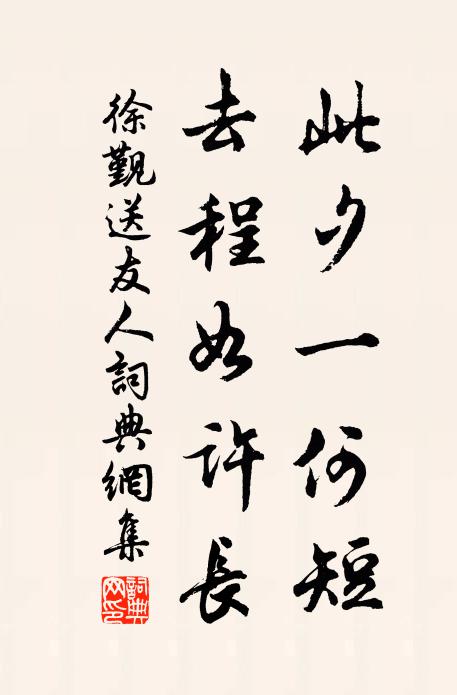 此夕一何短
去程如許長
徐觀送友人詞典網集
詞典
网印